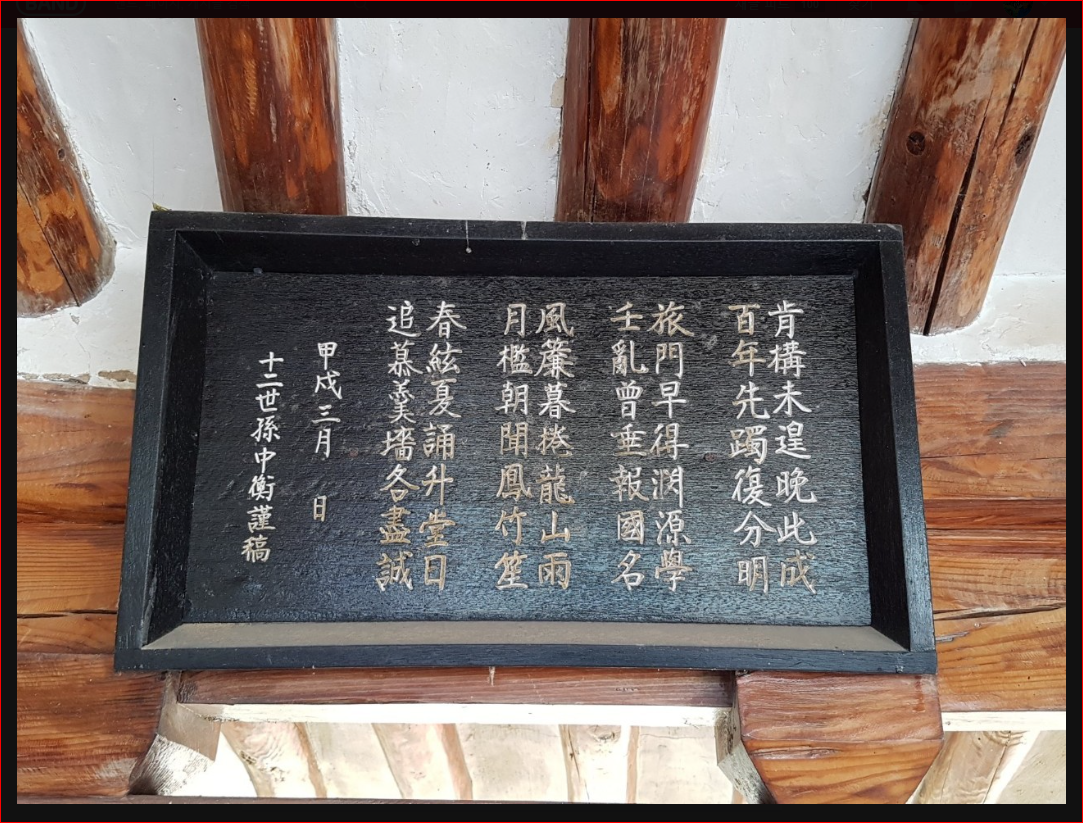 肯構未遑晩此成
百年先躅復分明
旅門早得渕源學
壬亂曾垂報國名
風簾暮捲龍山雨
月檻朝聞鳳竹笙
春絃夏誦升堂日
追慕羹墻各盡誠
甲戌三月 日
十二世孫中衡謹稿